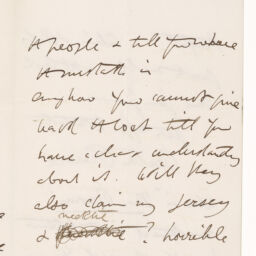 & people & tell you where
A mustask is
anyhow you cannot give
back A boat till you
have a clear understanding
about it. Will they
also claim my Jersey
necktie
& ? horrible